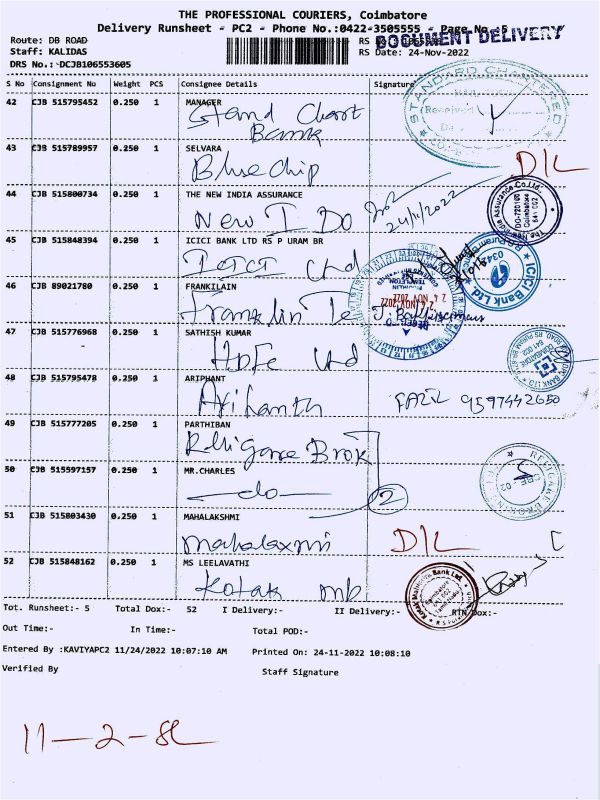 THE PROFESSIONAL COURIERS, Coimbatore
Delivery Runsheet - PC2 - Phone No.:0422-3505555 - Page No. 5
DOCUMENT DELIVERY
Route: DB ROAD
Staff: KALIDAS
RS Date: 24-Nov-2022
DRS No.:-DCJB106553605
S No Consignment No Weight PCS Consignee Details Signature
42 CJB 515795452 0.250 1 MANAGER
Stand Chart
Bank
STANDARD CHARTERED
43 CJB 515789957 0.250 1 SELVARA
Bluechip D/L
44 CJB 515800734 0.250 1 THE NEW INDIA ASSURANCE
New I Do 24/11/2022
The New India Assurance Co.Ltd.
DO-720100
Coimbatore
641 002
45 CJB 515848394 0.250 1 ICICI BANK LTD RS P URAM BR
ICICI Ltd
ICICI Bank Ltd.
46 CJB 89021780 0.250 1 FRANKILAIN
Franklin Te
24 NOV 2022
47 CJB 515776968 0.250 1 SATHISH KUMAR
HDFC Ltd
48 CJB 515795478 0.250 1 ARIPHANT
Arihanth FAZIL 9597442650
49 CJB 515777205 0.250 1 PARTHIBAN
Relligare Brok
50 CJB 515597157 0.250 1 MR.CHARLES
-do- 2
51 CJB 515803430 0.250 1 MAHALAKSHMI
Mahalaxmi D/L
52 CJB 515848162 0.250 1 MS LEELAVATHI
Kotak mb
Kotak Mahindra Bank Ltd.
Tot. Runsheet:- 5 Total Dox:- 52 I Delivery:- II Delivery:- RTN Dox:-
Out Time:- In Time:- Total POD:-
Entered By :KAVIYAPC2 11/24/2022 10:07:10 AM Printed On: 24-11-2022 10:08:10
Verified By Staff Signature
11-2-82